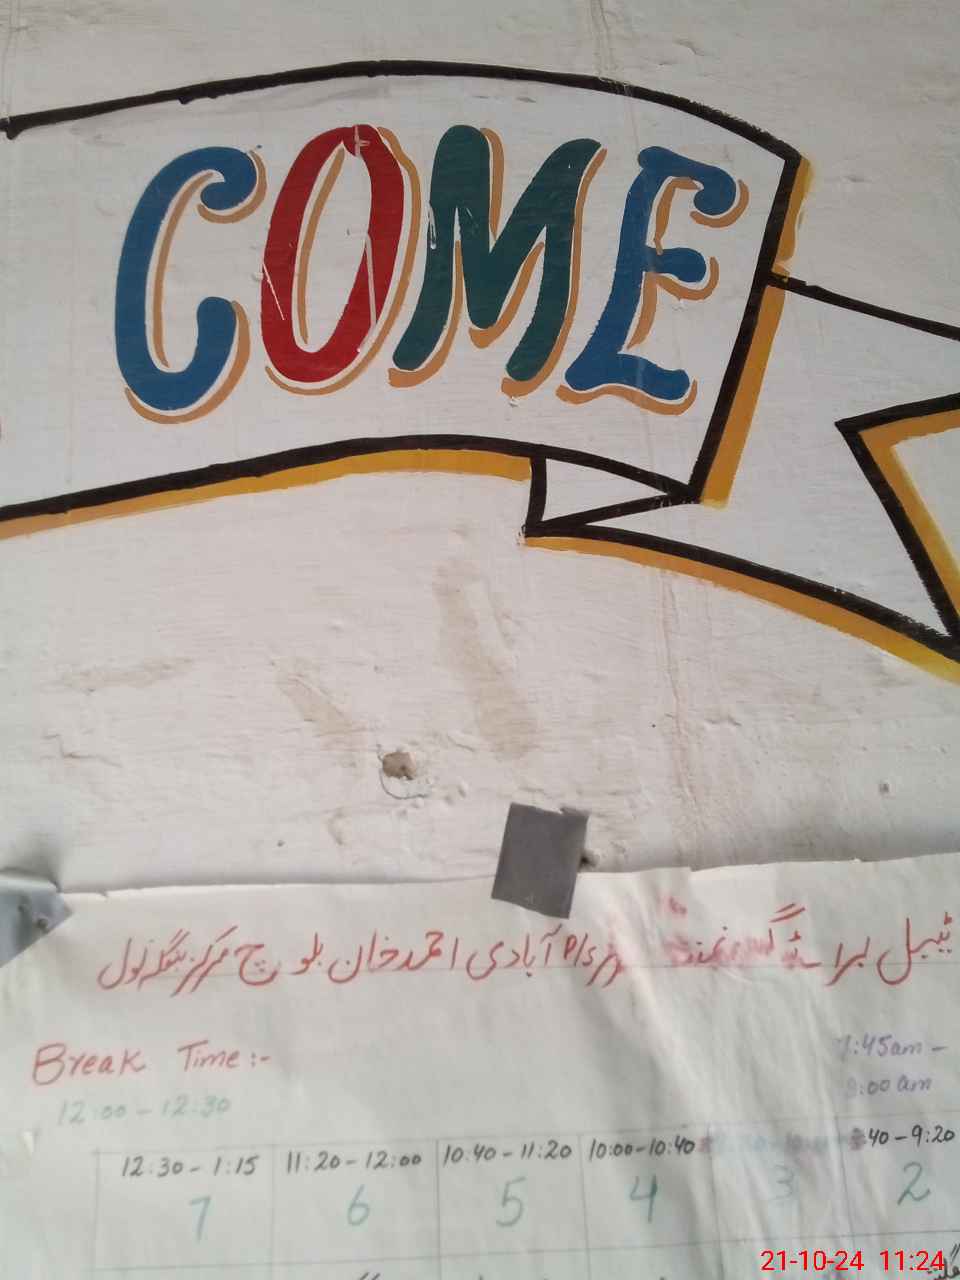 COME
ٹیبل برائے گورنمنٹ P/S آبادی احمد خان بلوچ مرکز بنگلہ نول
Break Time:-
12:00-12:30
7:45am -
8:00 am
12:30-1:15 11:20-12:00 10:40-11:20 10:00-10:40 40-9:20
7 6 5 4 3 2
21-10-24 11:24